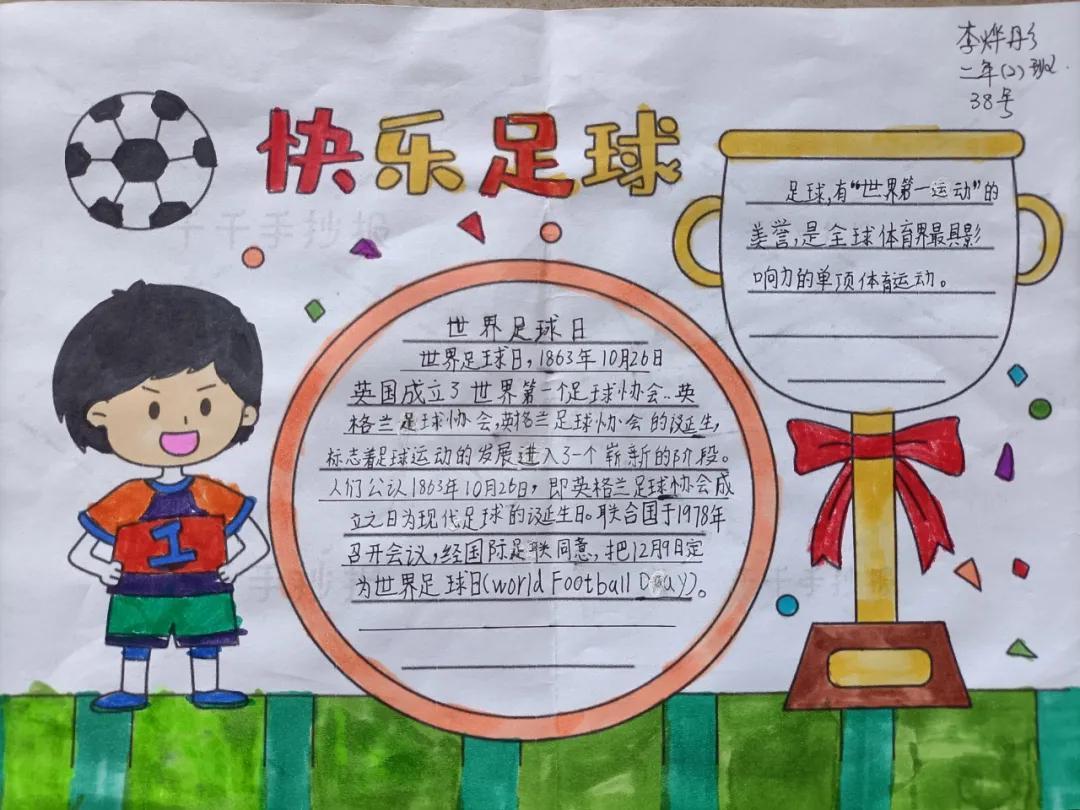 李烨彤
二年(2)班.
38号
快乐足球
千千手抄报
足球,有“世界第一运动”的
美誉,是全球体育界最具影
响力的单项体育运动。
世界足球日
世界足球日,1863年10月26日
英国成立了世界第一个足球协会..英
格兰足球协会,英格兰足球协会的诞生,
标志着足球运动的发展进入了一个崭新的阶段。
人们公认1863年10月26日,即英格兰足球协会成
立之日为现代足球的诞生日。联合国于1978年
召开会议,经国际足联同意,把12月9日定
为世界足球日(world Football Day)。